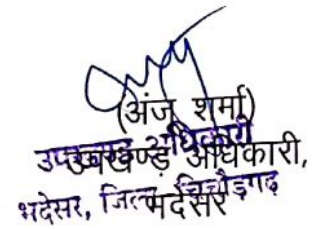 (अंजू शर्मा)
उपखण्ड अधिकारी
उपखण्ड़ अधिकारी,
भदेसर, जिला चित्तौड़गढ़
भदेसर